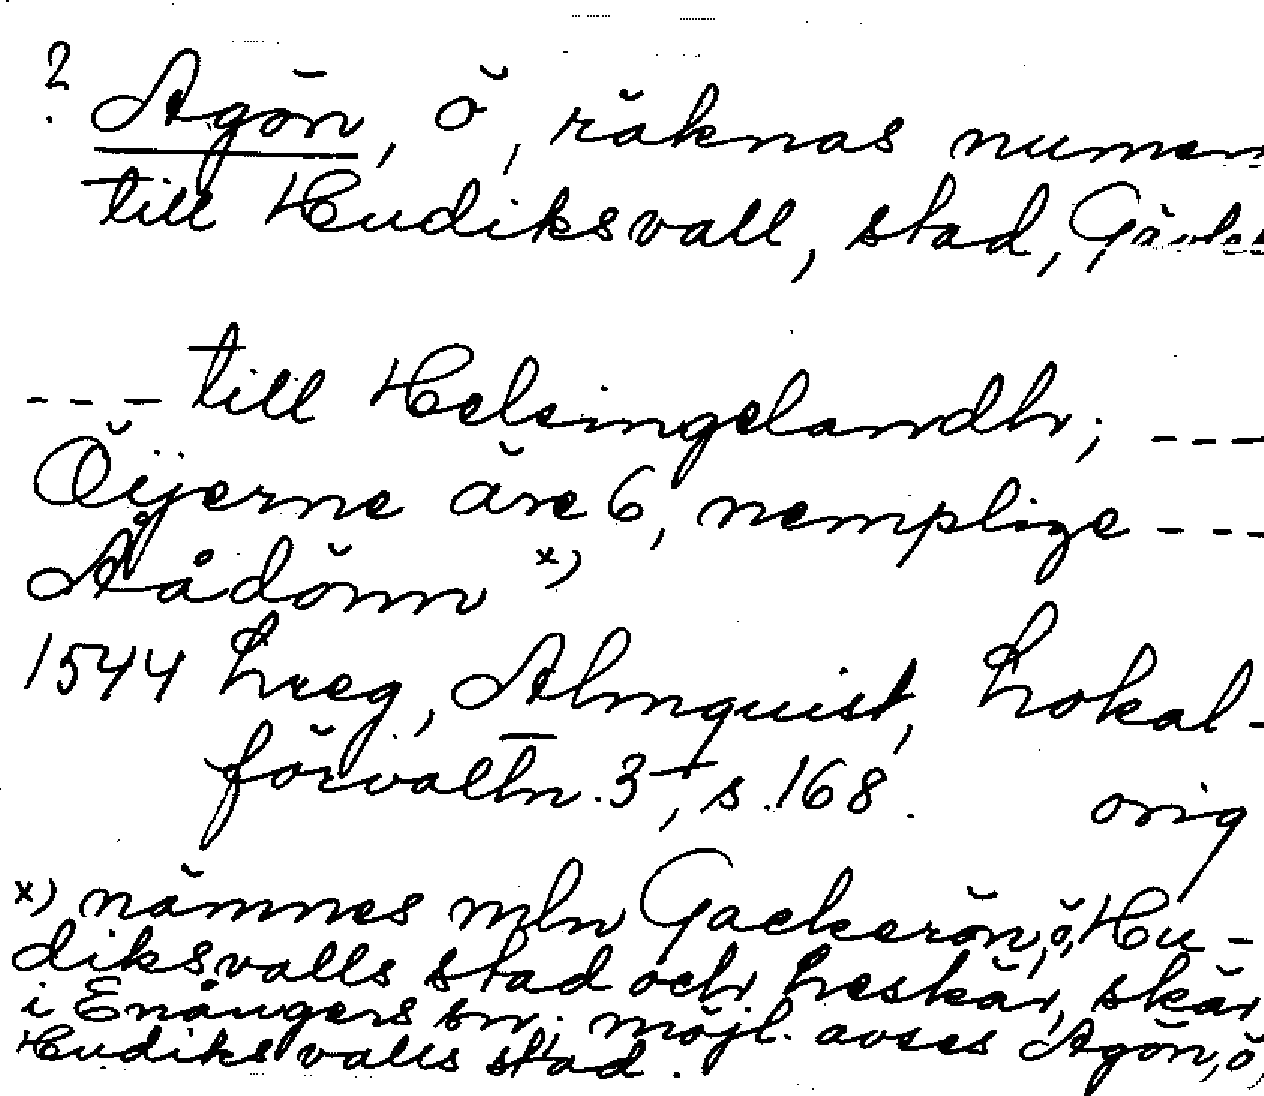 ? Agön, ö, räknas numera
till Hudiksvall, stad, Gävleb
--- till Helsingelandh; ---
Öÿerne äre 6, nemplige ---
Åådönn x)
1544 Lreg, Almquist, Lokal-
förvaltn. 3, s. 168. orig
x) nämnes mln Gackerön, ö, Hu-
diksvalls stad och Leskär, skär
i Enångers sn; möjl. avses Agön, ö,
Hudiksvalls stad.